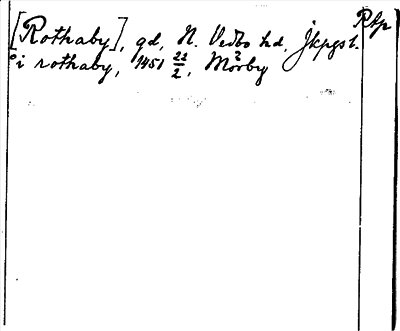 [Rothaby], gd, N. Vedbo hd, Jkpgs l. Rtp
i rothaby, 1451 22/2, Mörby